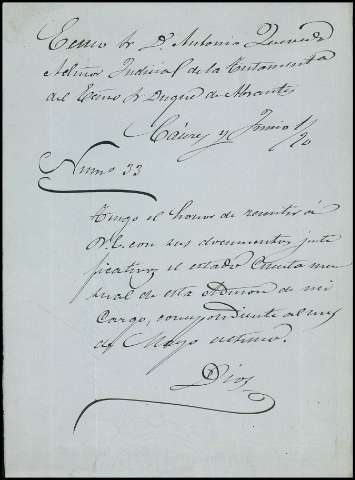 Excmo Sr D. Antonio Quevedo
Admor Judicial de la Testamentª
del Excmo Sr Duque de Abrantes
Cáceres y Junio 1/70
Numo 33
Tengo el honor de remitir á
V.E. con sus documentos justi
ficativos el estado Cuenta men
sual de esta Admon de mi
Cargo, correspondiente al mes
de Mayo ultimo.
Dios